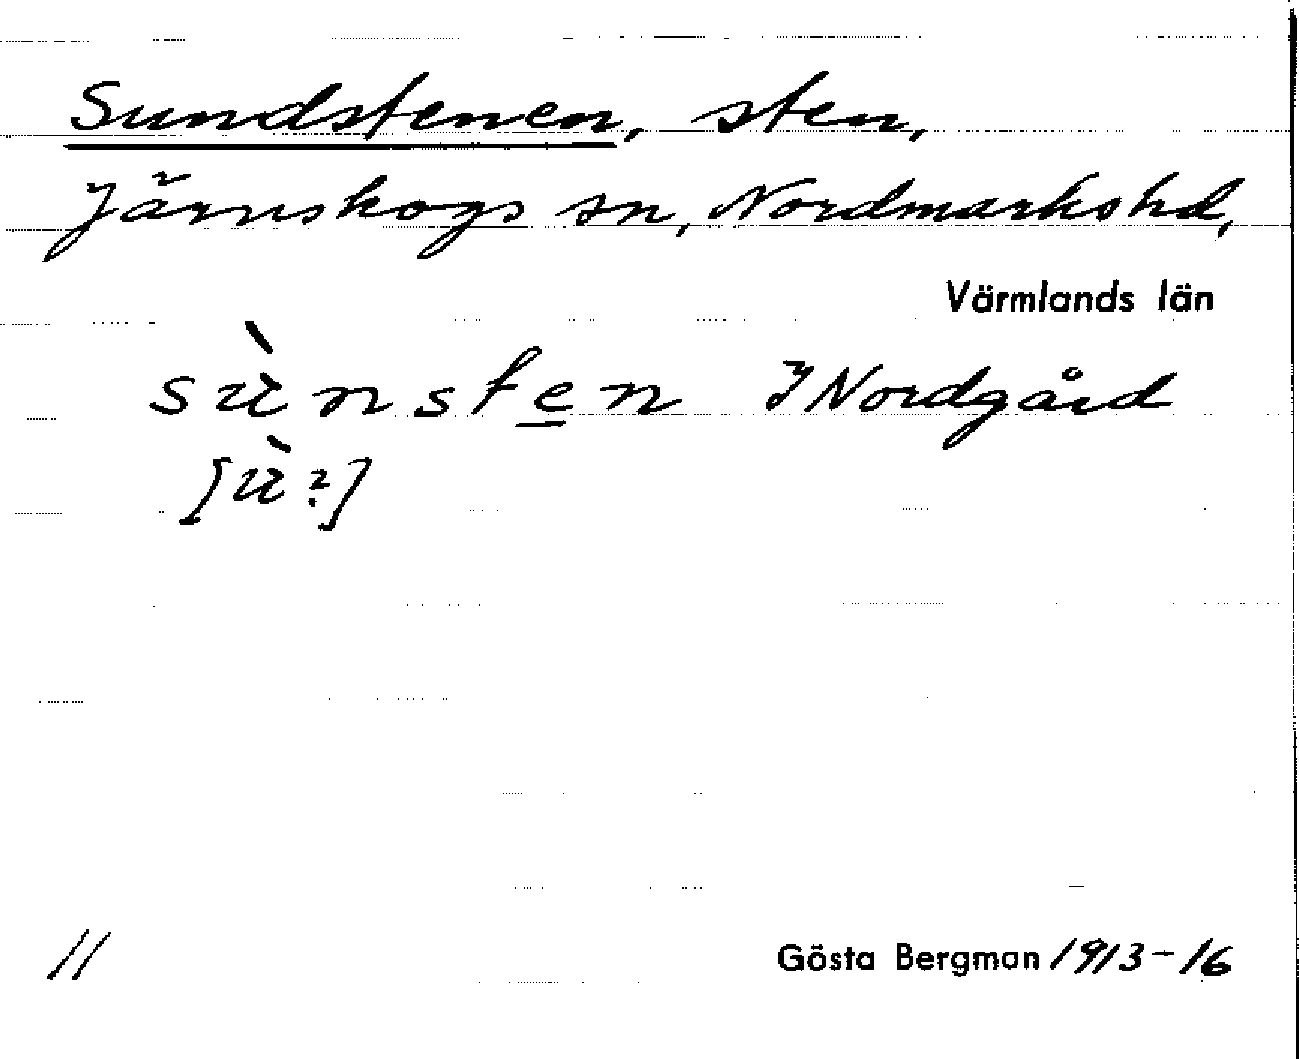 Sundstenen, sten,
Järnskogs sn, Nordmarks hd,
Värmlands län
sùnsten I Nordgård
[ù?]
11 Gösta Bergman 1913-16